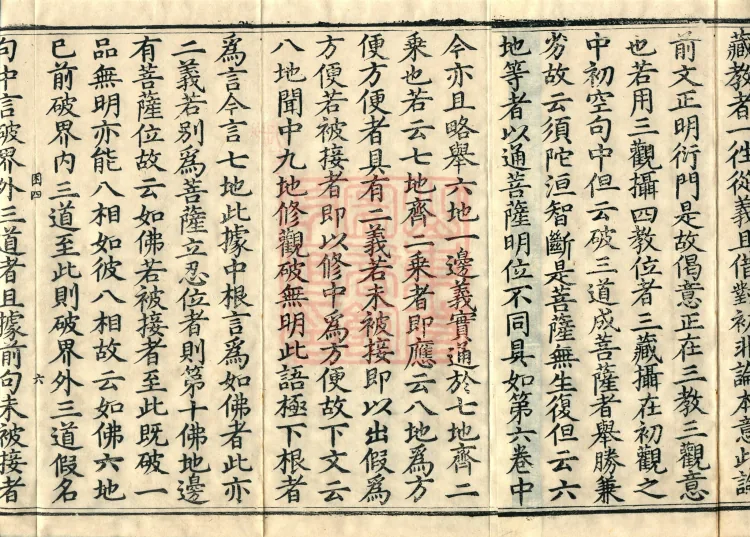 藏教者一往從義且借對初非論本意此論
前文正明衍門是故偈意正在三教三觀意
也若用三觀攝四教位者三藏攝在初觀之
中初空句中但云破三道成菩薩者舉勝兼
劣故云須陀洹智斷是菩薩無生復但云六
地等者以通菩薩明位不同具如第六卷中
今亦且略舉六地一邊義實通於七地齊二
乘也若云七地齊二乘者即應云八地為方
便方便者具有二義若未被接即以出假為
方便若被接者即以修中為方便故下文云
八地聞中九地修觀破無明此語極下根者
為言今言七地此據中根言為如佛者此亦
二義若別為菩薩立忍位者則第十佛地邊
有菩薩位故云如佛若被接者至此既破一
品無明亦能八相如彼八相故云如佛六地
已前破界內三道至此則破界外三道假名
囝四
六
句中言破界外三道者且據前句未被接者